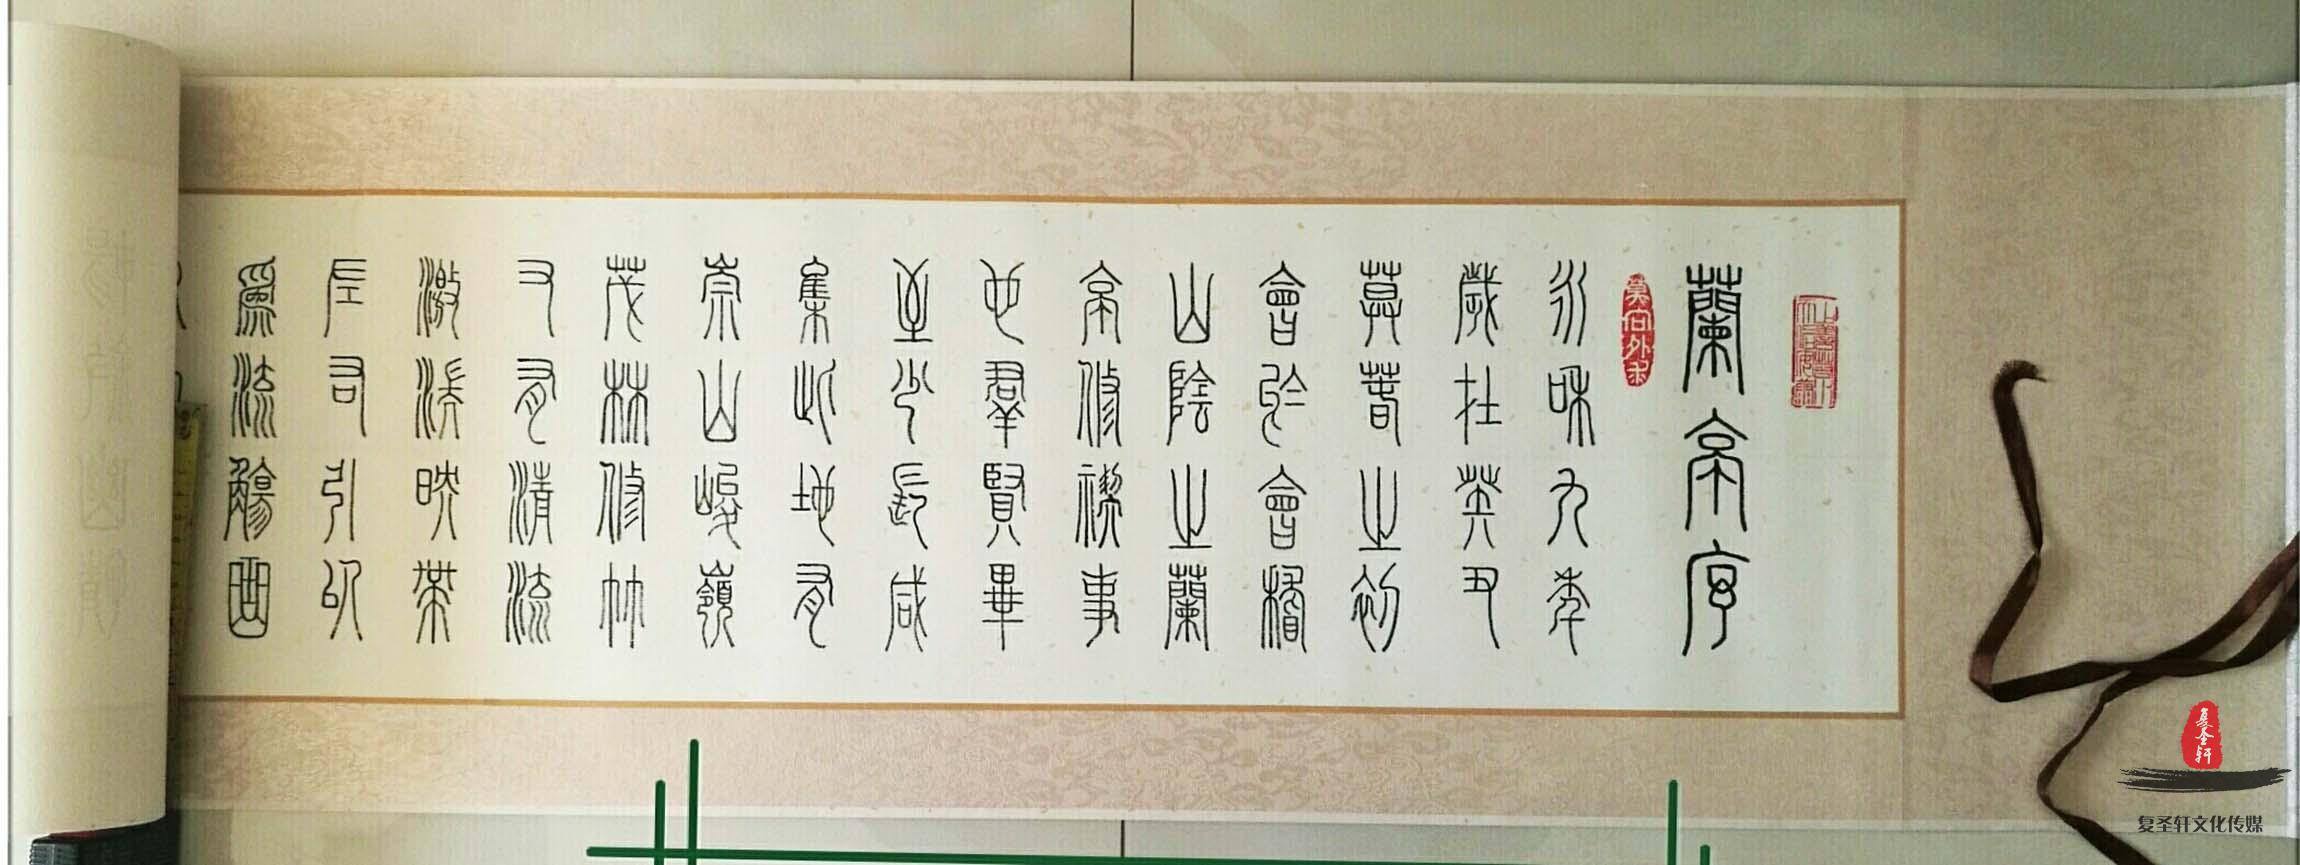 蘭亭序
永和九年
歲在癸丑
莫萅之初
會於會稽
山陰之蘭
亭修禊事
也羣賢畢
至少長咸
集此地有
崇山峻嶺
茂林修竹
又有清流
激湍映帶
左右引以
爲流觴曲
复圣轩
复圣轩文化传媒